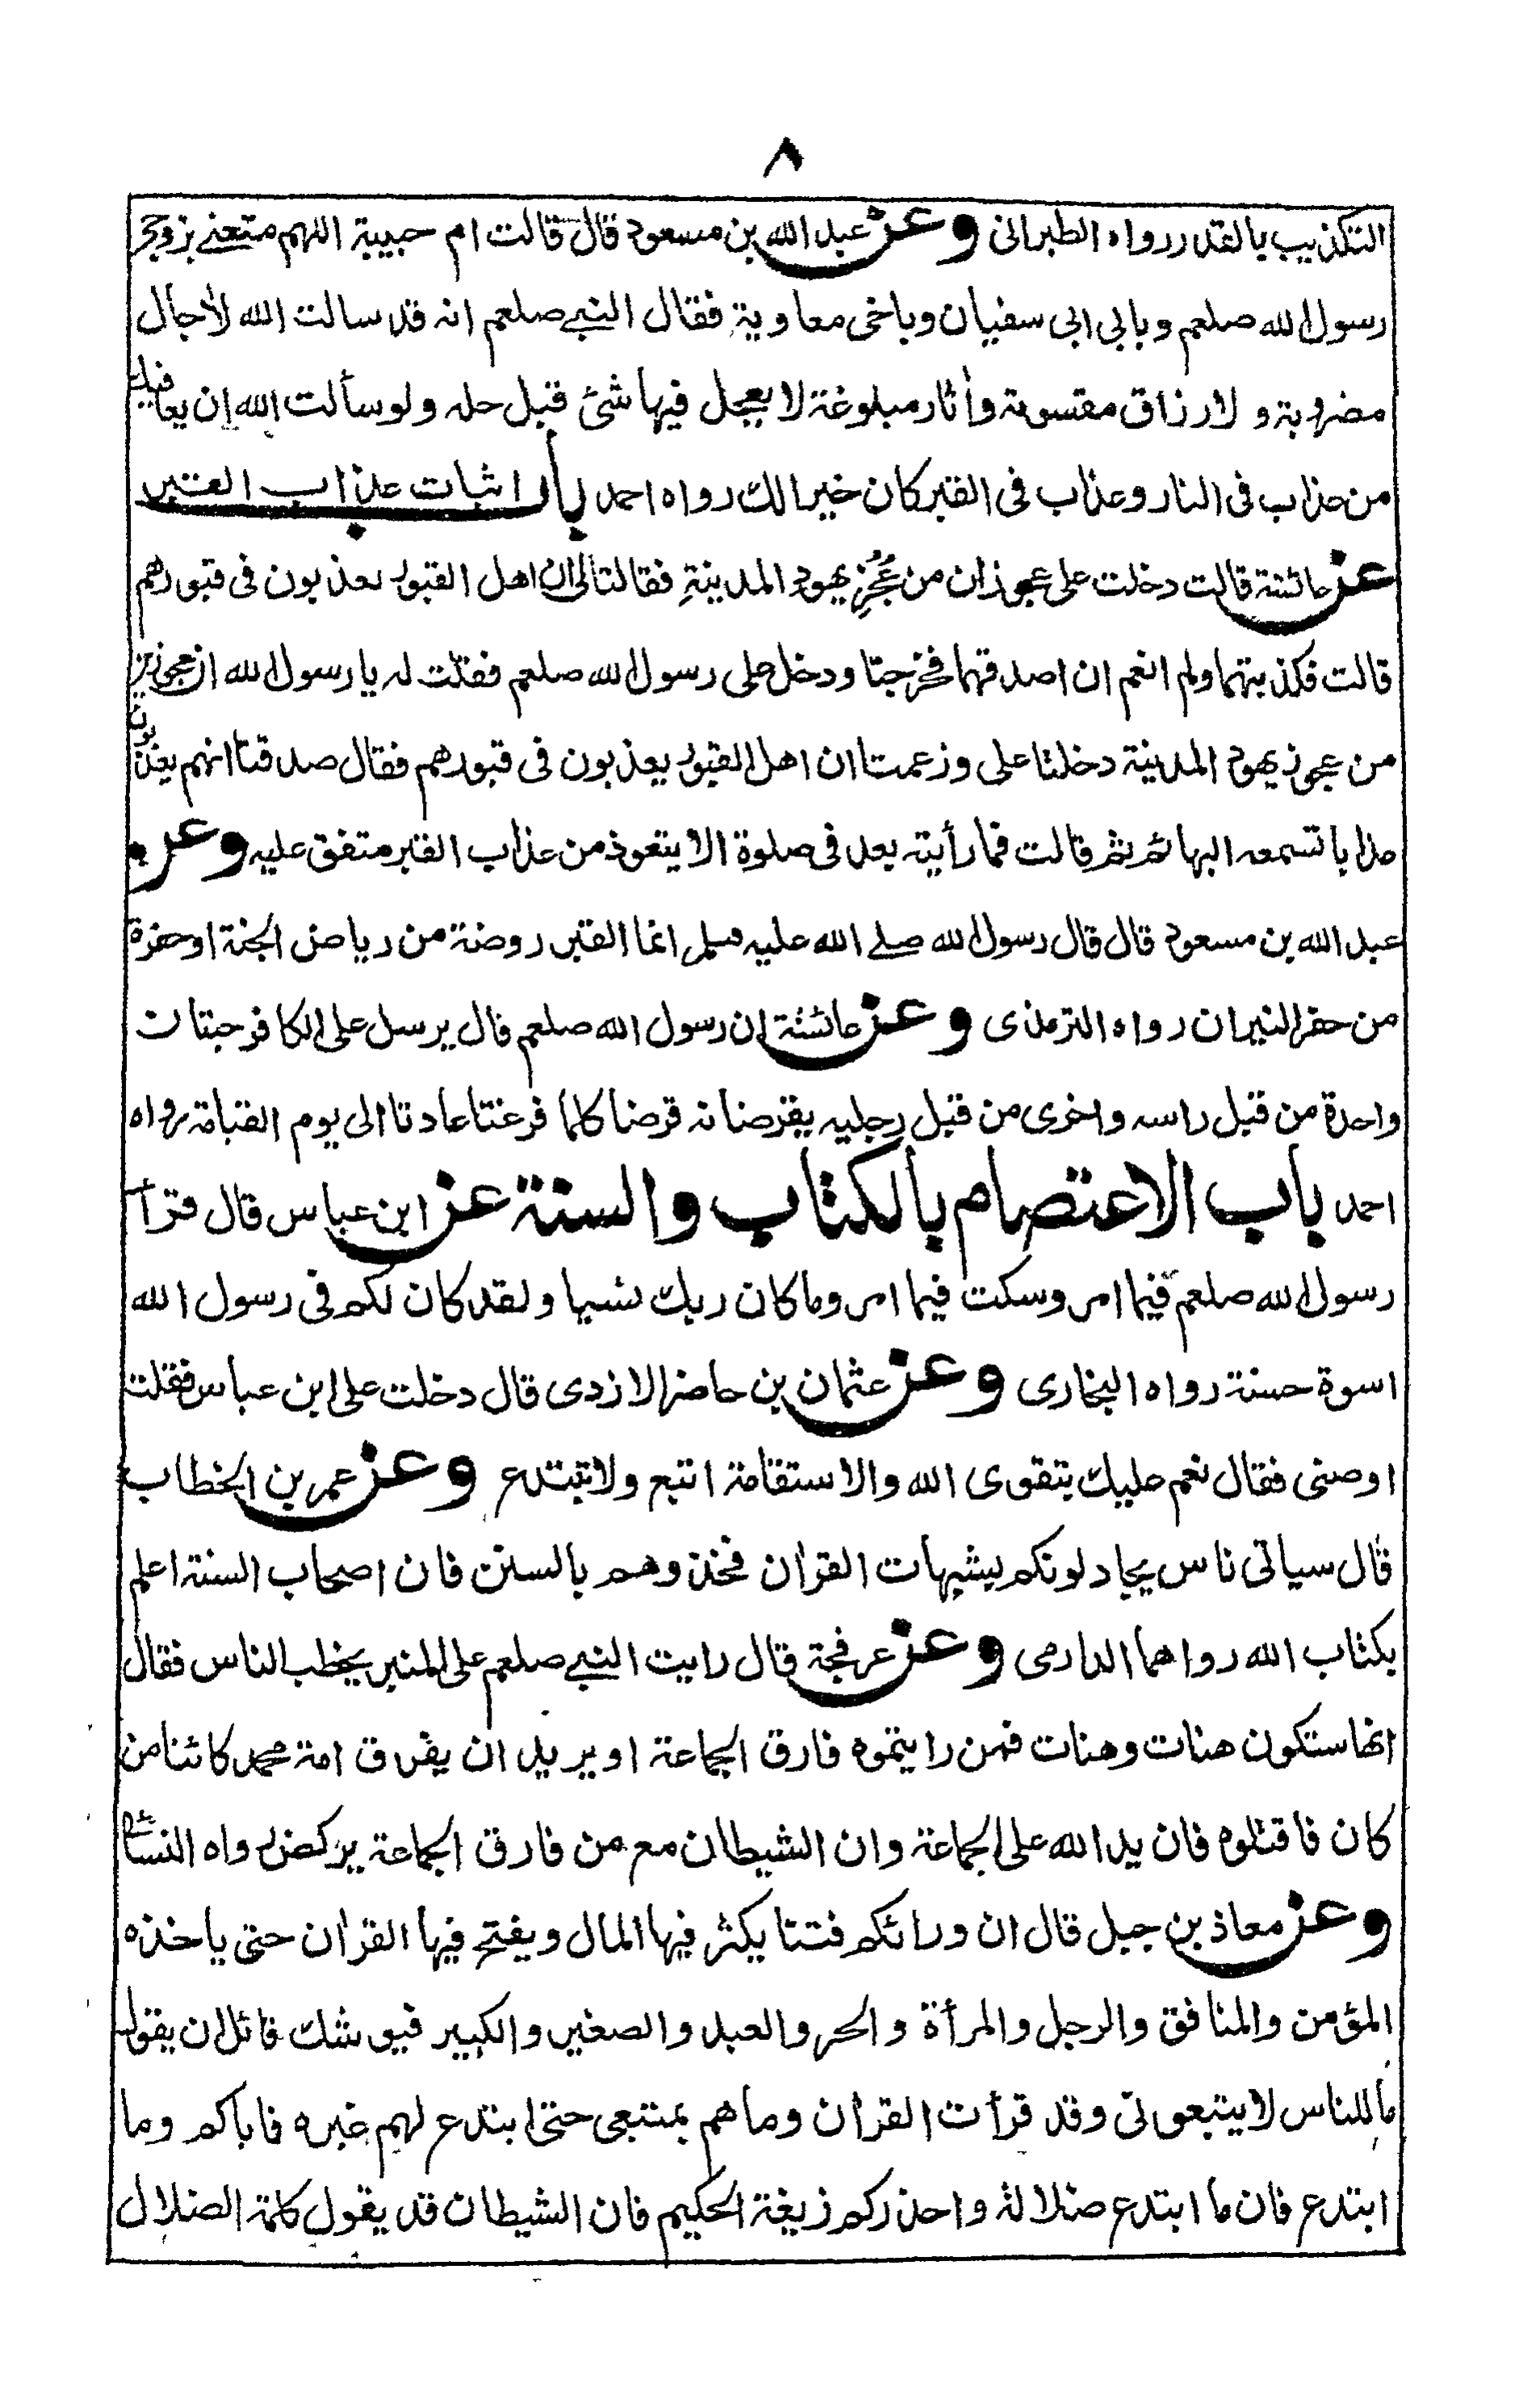 ٨
التكذيب بالقدر رواه الطبرانى وعن عبد الله بن مسعود قال قالت ام حبيبة اللهم متعنى بزوجى
رسول الله صلعم وبابى ابى سفيان وباخى معاوية فقال النبى صلعم انه قد سالت الله لأجال
مضروبة و لارزاق مقسومة وأثار مبلوغة لا يعجل فيها شئ قبل حله ولو سألت الله ان يعافيك
من عذاب فى النار وعذاب فى القبر كان خيرا لك رواه احمد باب اثبات عذاب القبر
عن عائشة قالت دخلت على عجوزان من عُجُزِ يهود المدينةِ فقالتا لى ان اهل القبور يعذبون فى قبورهم
قالت فكذبتهما ولم انعم ان اصدقهما فخرجتا ودخل على رسول الله صلعم فقلت له يا رسول الله ان عجوزين
من عجوز يهود المدينة دخلتا على وزعمتا ان اهل القبور يعذبون فى قبورهم فقال صدقتا انهم يعذبون
عذابا تسمعه البهائم ثم قالت فما رأيته بعد فى صلوة الا يتعوذ من عذاب القبر متفق عليه وعن
عبد الله بن مسعود قال قال رسول الله صلى الله عليه وسلم انما القبر روضة من رياض الجنة او حفرة
من حفر النيران رواه الترمذى وعن عائشة ان رسول الله صلعم قال يرسل على الكافر حيتان
واحدة من قبل راسه واخرى من قبل رجليه يقرضانه قرضا كلما فرغتا عادتا الى يوم القيامة رواه
احمد باب الاعتصام بالكتاب والسنة عن ابن عباس قال قرأ
رسول الله صلعم فيما امر وسكت فيما امر وما كان ربك نسيا ولقد كان لكم فى رسول الله
اسوة حسنة رواه البخارى وعن عثمان بن حاضر الازدى قال دخلت على ابن عباس فقلت
اوصنى فقال نعم عليك بتقوى الله والاستقامة اتبع ولا تبتدع وعن عمر بن الخطاب
قال سياتى ناس يجادلونكم بشبهات القرأن فخذوهم بالسنن فان اصحاب السنة اعلم
بكتاب الله رواهما الدارمى وعن عرفجة قال رايت النبى صلعم على المنبر يخطب الناس فقال
انها ستكون هنات وهنات فمن رايتموه فارق الجماعة او يريد ان يفرق امة محمد كائنا من
كان فاقتلوه فان يد الله على الجماعة وان الشيطان مع من فارق الجماعة يركض رواه النسائى
وعن معاذ بن جبل قال ان ورائكم فتنا يكثر فيها المال ويفتح فيها القرأن حتى ياخذه
المؤمن والمنافق والرجل والمرأة والحر والعبد والصغير والكبير فيوشك قائل ان يقول
ما للناس لا يتبعونى وقد قرأت القرأن وما هم بمتبعى حتى ابتدع لهم غيره فاياكم وما
ابتدع فان ما ابتدع ضلالة واحذركم زيغة الحكيم فان الشيطان قد يقول كلمة الضلال